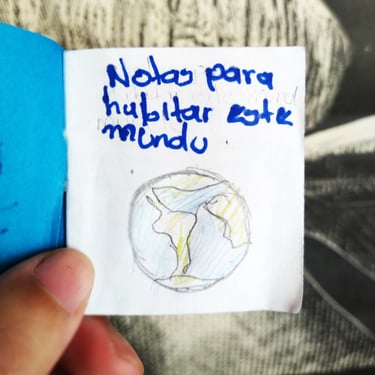 Notas para
habitar este
mundo.